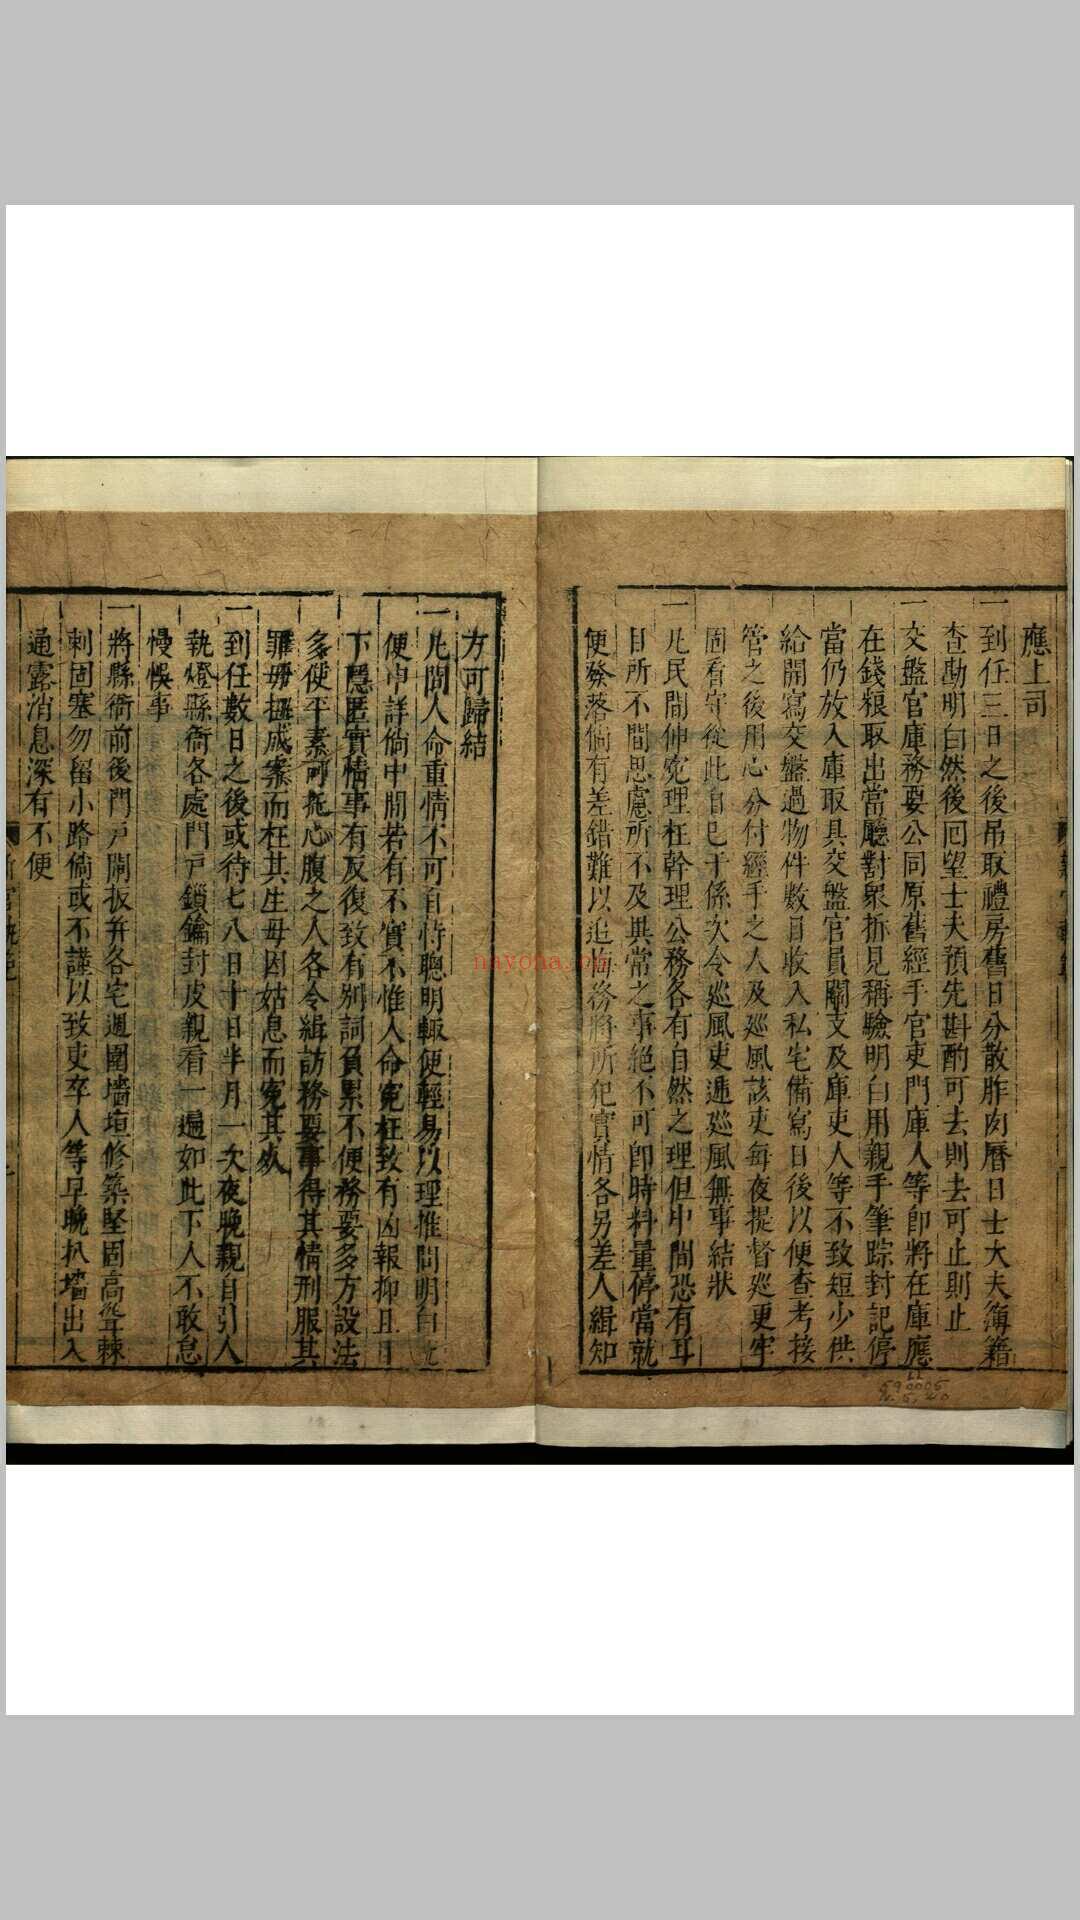 應上司
一到任三日之後吊取禮房舊日分散胙肉曆日士大夫簿籍
查勘明白然後囘望士夫預先斟酌可去則去可止則止
一交盤官庫務要公同原舊經手官吏門庫人等卽將在庫應
在錢粮取出當廳對衆拆見稱驗明白用親手筆踪封記停
當仍放入庫取具交盤官員關支及庫吏人等不致短少供
給開寫交盤過物件數目收入私宅備寫日後以便查考接
管之後用心分付經手之人及廵風該吏每夜提督廵更牢
固看守從此自已干係次令廵風吏遞廵風無事結狀
一凡民間伸寃理枉幹理公務各有自然之理但中間恐有耳
目所不聞思慮所不及異常之事絕不可卽時料量停當就
便發落倘有差錯難以追悔務將所犯實情各另差人緝知
方可歸結
一凡問人命重情不可自恃聰明輙便輕易以理推問明白
便申詳倘中間若有不實不惟人命寃枉致有凶報抑且
下隱匿實情事有反復致有别詞負累不便務要多方設法
多使平素可托心腹之人各令緝訪務要事得其情刑服其
罪毋摭成案而枉其生毋因姑息而寃其
一到任數日之後或待七八日十日半月一次夜晚親自引人
執燈縣衙各處門戸鎖鑰封皮親看一遍如此下人不敢怠
慢悞事
一將縣衙前後門戸閘扳并各宅週圍墻垣修築堅固高聳棘
刺固塞勿留小路倘或不謹以致吏卒人等早晚扒墻出入
通露消息深有不便
nayona.cn